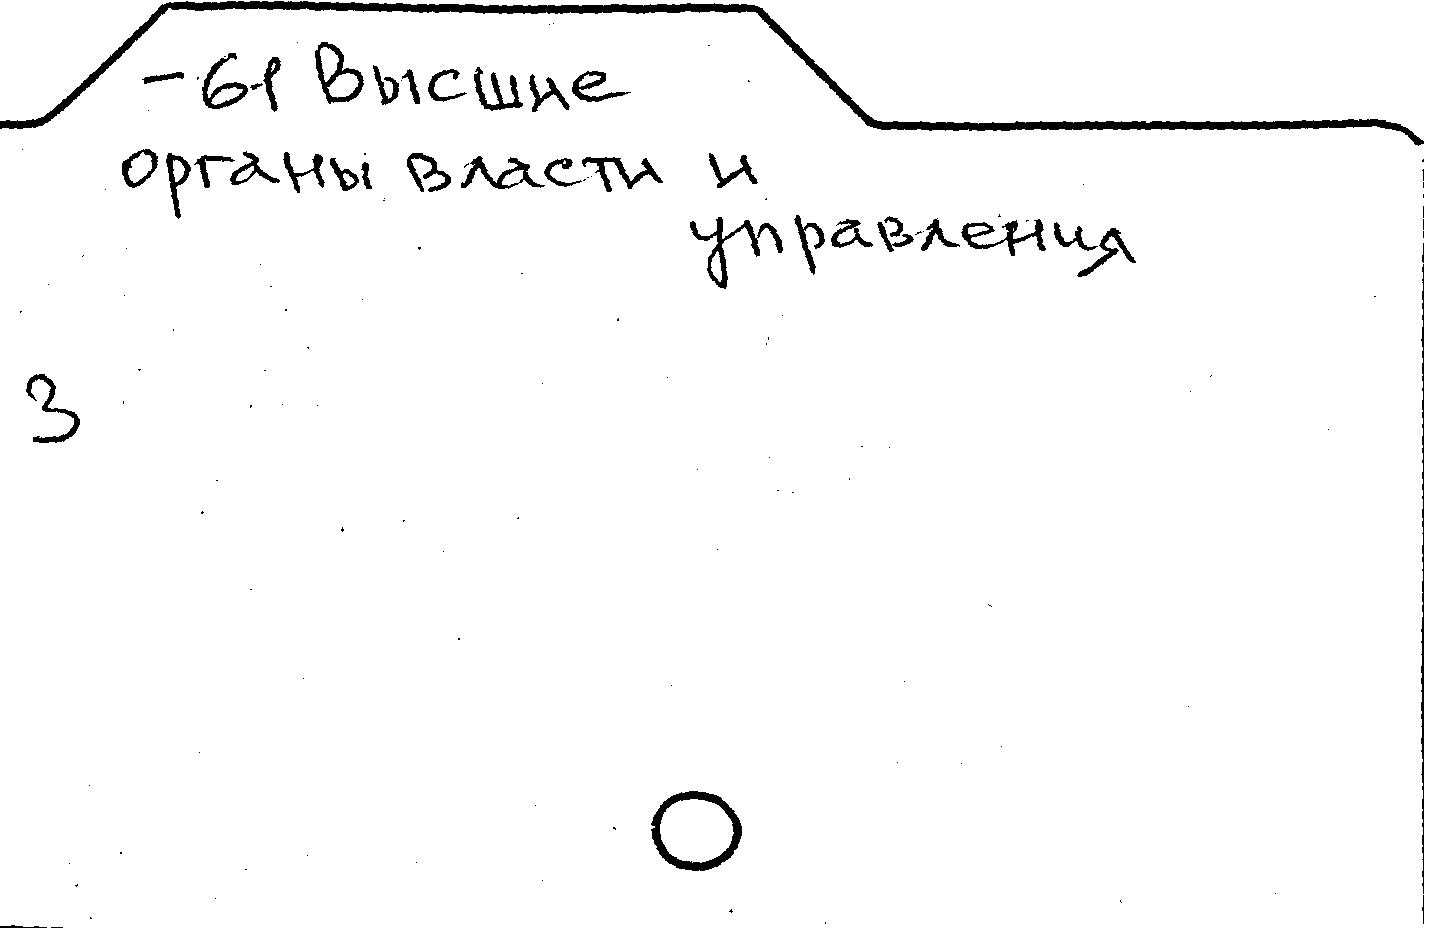 -61 Высшие
органы власти и
управления
3